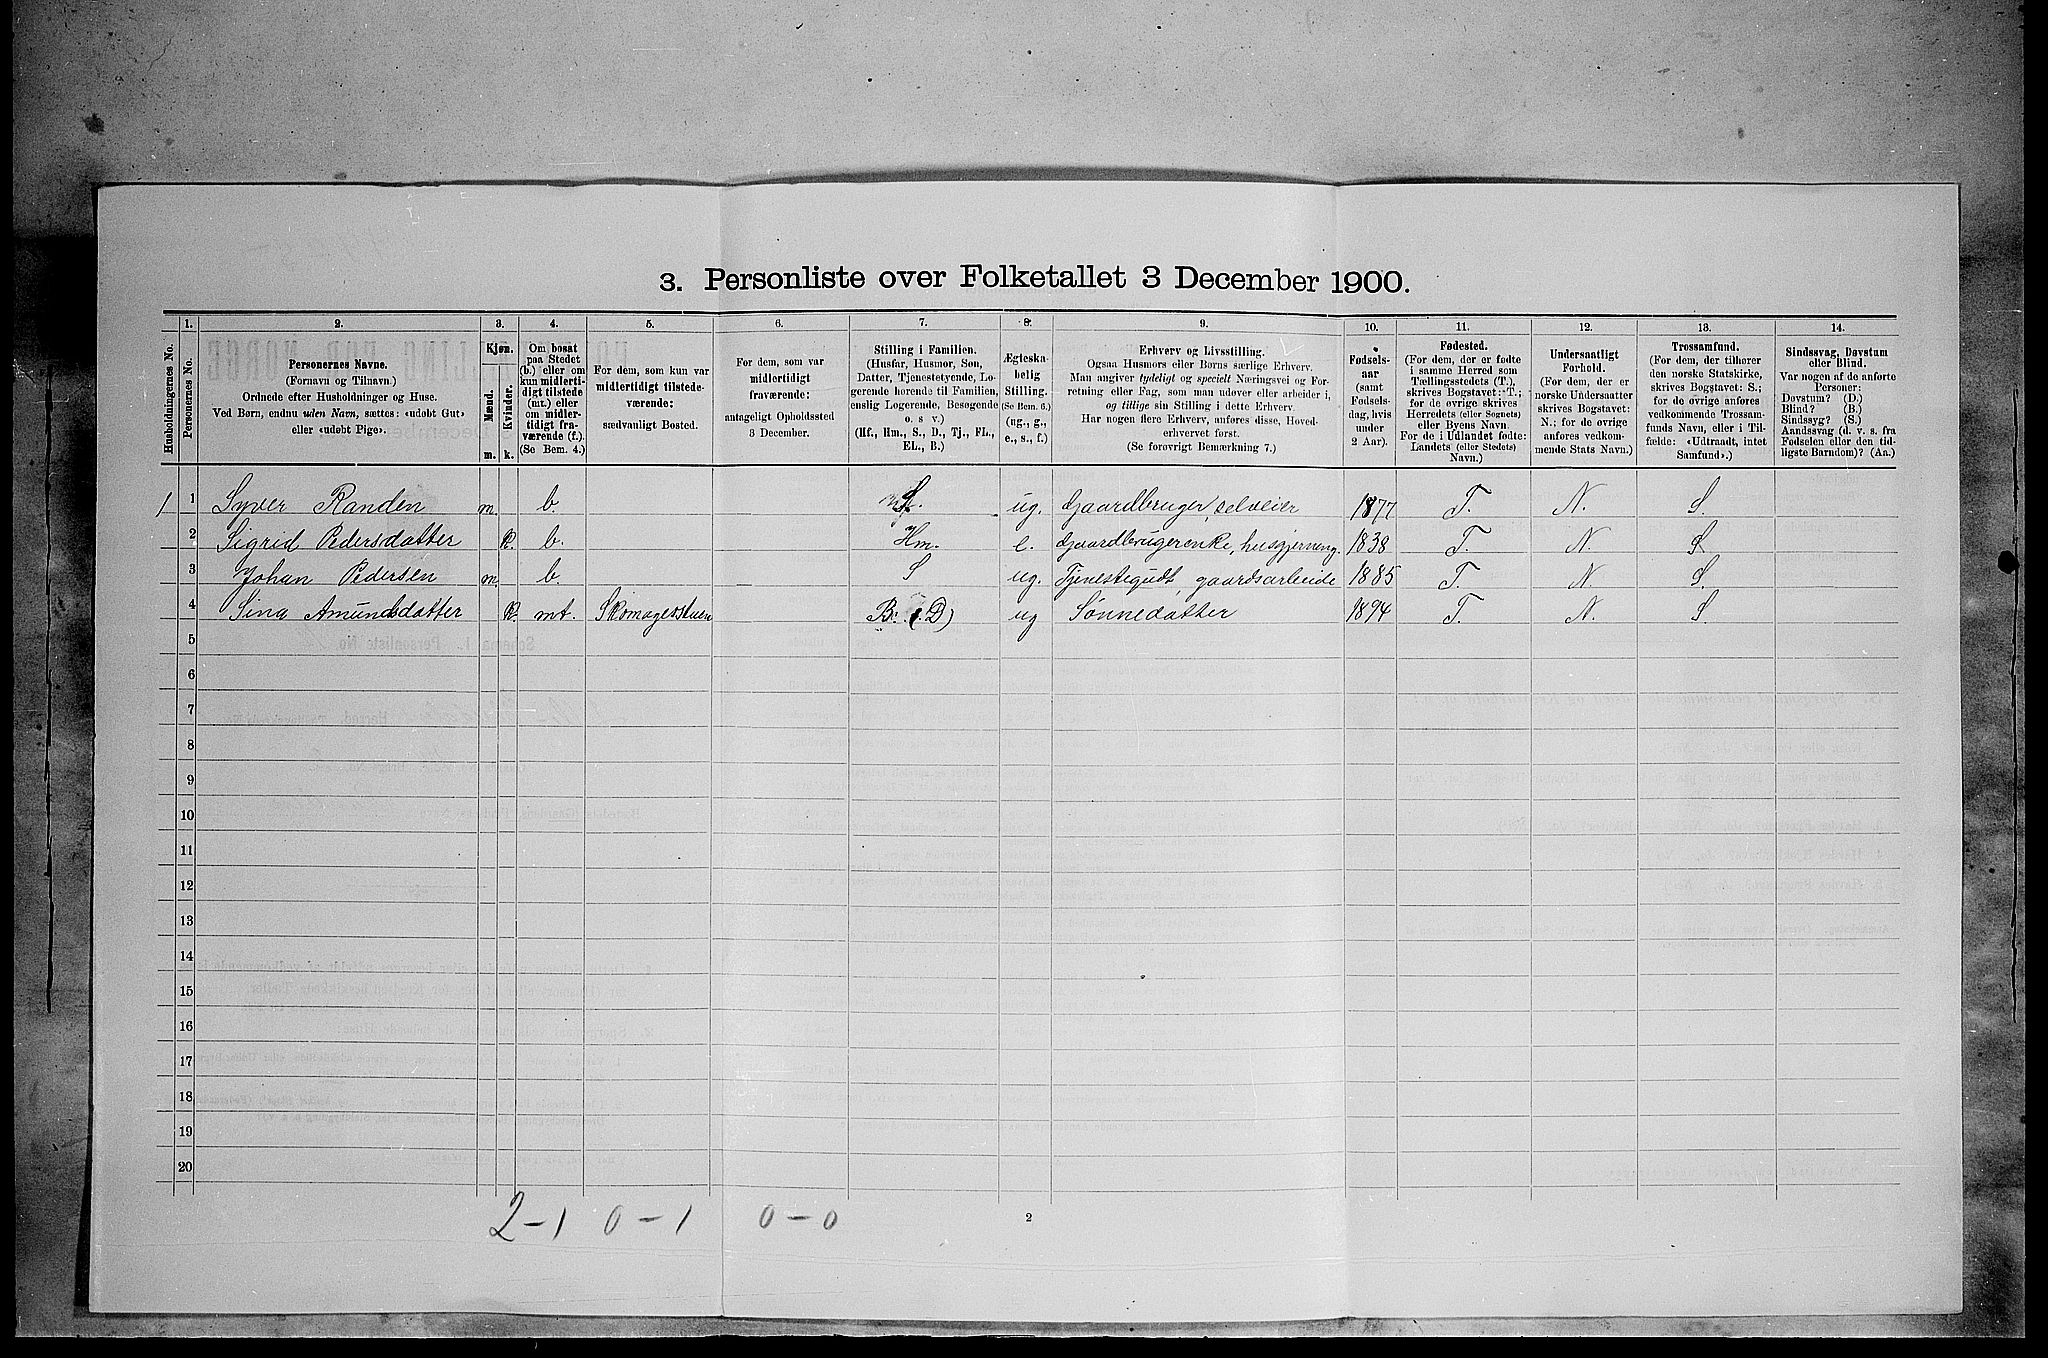 3. Personliste over Folketallet 3 December 1900.
1. 2. 3. 4. 5. 6. 7. 8. 9. 10. 11. 12. 13. 14.
Husholdningernes No.
Personernes No.
Personernes Navne.
(Fornavn og Tilnavn.)
Ordnede efter Husholdninger og Huse.
Ved Børn, endnu uden Navn, sættes: «udøbt Gut»
eller «udøbt Pige».
Kjøn.
Mænd.
Kvinder.
m. k.
Om bosat
paa Stedet
(b.) eller om
kun midlerti-
digt tilstede
(mt.) eller
om midler-
tidigt fra-
værende (f.).
(Se Bem. 4.)
For dem, som kun var
midlertidigt tilstede-
værende:
sædvanligt Bosted.
For dem, som var
midlertidigt
fraværende:
antageligt Opholdssted
3 December.
Stilling i Familien.
(Husfar, Husmor, Søn,
Datter, Tjenestetyende, Lo-
gerende hørende til Familien,
enslig Logerende, Besøgende
o. s. v.)
(Hf., Hm., S., D., Tj., FL.,
EL., B.)
Ægteska-
belig
Stilling.
(Se Bem. 6.)
(ug., g.,
e., s., f.)
Erhverv og Livsstilling.
Ogsaa Husmors eller Børns særlige Erhverv.
Man angiver tydeligt og specielt Næringsvei og For-
retning eller Fag, som man udøver eller arbeider i,
og tillige sin Stilling i dette Erhverv.
Har nogen flere Erhverv, anføres disse, Hoved-
erhvervet først.
(Se forøvrigt Bemærkning 7.)
Fødsels-
aar
(samt
Fødsels-
dag, hvis
under
2 Aar).
Fødested.
(For dem, der er fødte
i samme Herred som
Tællingsstedets (T.),
skrives Bogstavet: T.;
for de øvrige skrives
Herredets (eller Sognets)
eller Byens Navn.
For de i Udlandet fødte:
Landets (eller Stedets)
Navn.)
Undersaatligt
Forhold.
(For dem, der er
norske Undersaatter
skrives Bogstavet:
N.; for de øvrige
anføres vedkom-
mende Stats Navn.)
Trossamfund.
(For dem, der tilhører
den norske Statskirke,
skrives Bogstavet: S.;
for de øvrige anføres
vedkommende Trossam-
funds Navn, eller i Til-
fælde: «Udtraadt, intet
Samfund».)
Sindssvag, Døvstum
eller Blind.
Var nogen af de anførte
Personer:
Døvstum? (D.)
Blind? (B.)
Sindssyg? (S.)
Aandssvag (d. v. s. fra
Fødselen eller den tid-
ligste Barndom)? (Aa.)
1 1 Syver Randen m. b. S. ug. Gaardbruger, selveier 1877 T. N. S.
2 Sigrid Pedersdatter k. b. Hm. e. Gaardbrugerenke, husgjerning. 1838 T. N. S
3 Johan Pedersen m. b. S ug. Tjenestegudt, gaardsarbeide 1885 T. N. S.
4 Sina Amundsdatter k. mt. Skomagesstuen B. (D) ug Sønnedatter 1894 T. N. S
5
6
7
8
9
10
11
12
13
14
15
16
17
18
19
20
2-1 0-1 0-0
2